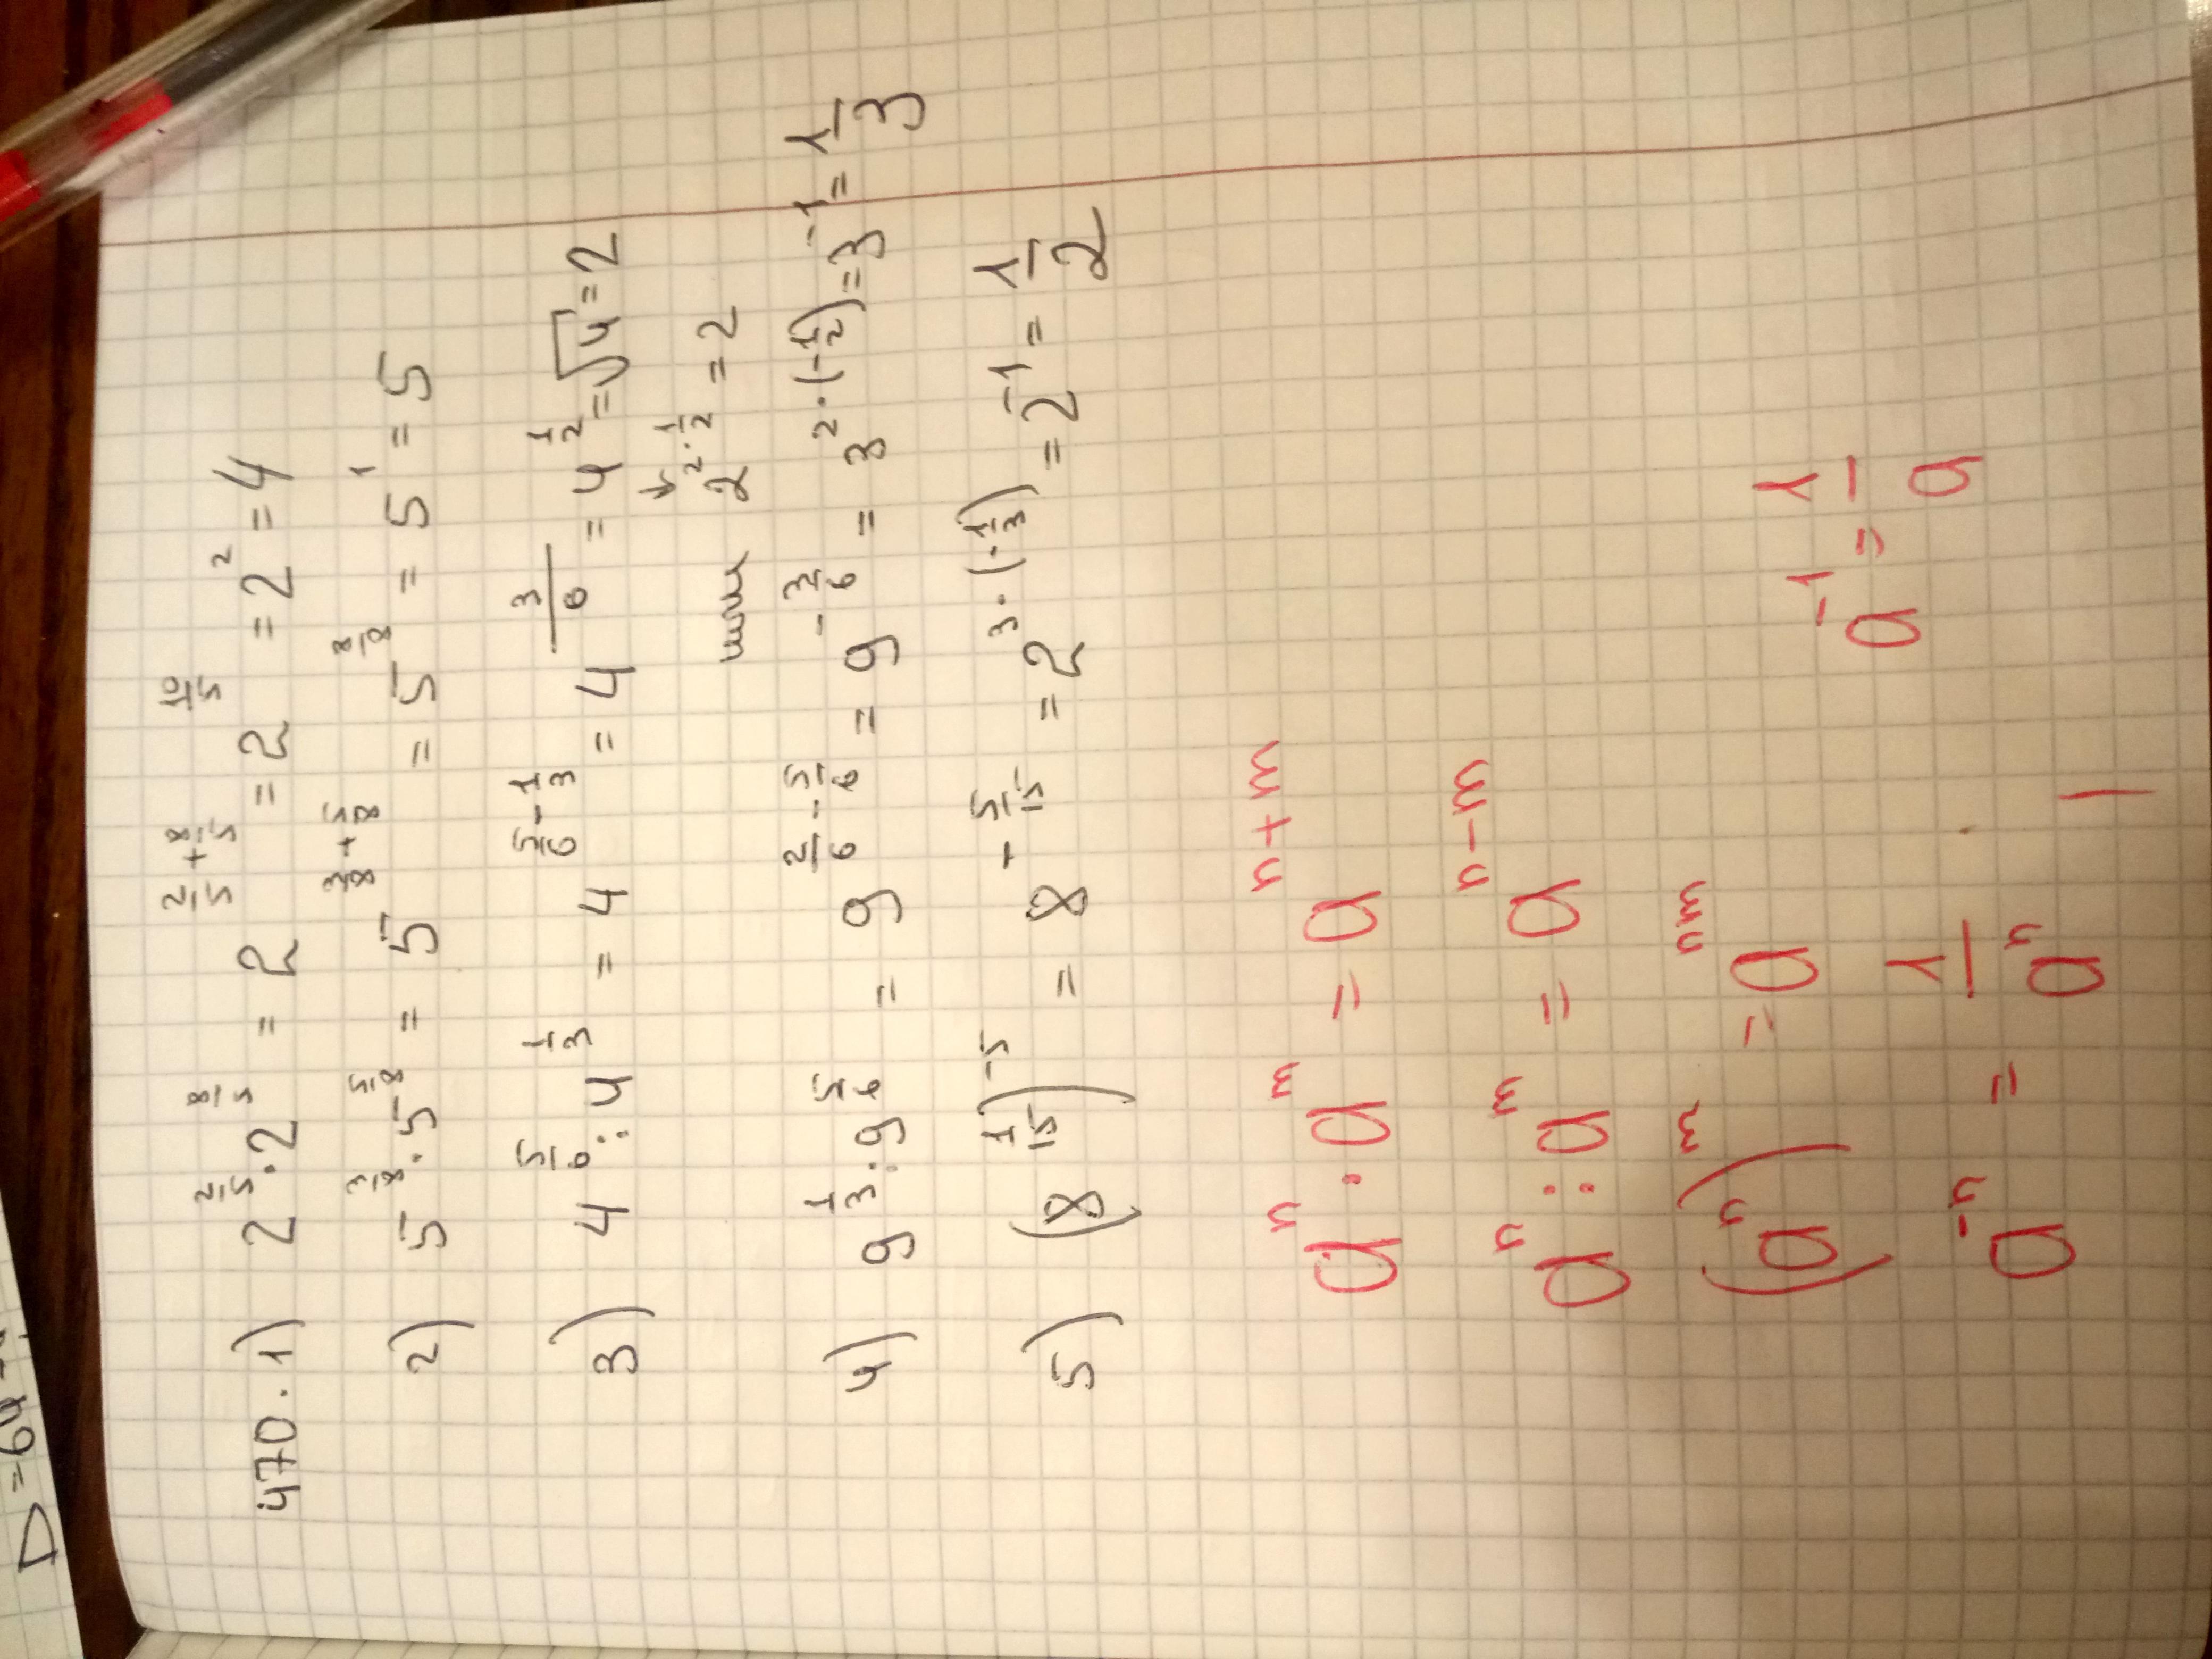 470. 1) 2^(2/5) · 2^(8/5) = 2^(2/5 + 8/5) = 2^(10/5) = 2^2 = 4
2) 5^(3/8) · 5^(5/8) = 5^(3/8 + 5/8) = 5^(8/8) = 5^1 = 5
3) 4^(5/6) : 4^(1/3) = 4^(5/6 - 1/3) = 4^(3/6) = 4^(1/2) = √4 = 2
или 2^(2 · 1/2) = 2
4) 9^(1/3) : 9^(5/6) = 9^(2/6 - 5/6) = 9^(-3/6) = 3^(2 · (-1/2)) = 3^(-1) = 1/3
5) (8^(1/15))^(-5) = 8^(-5/15) = 2^(3 · (-1/3)) = 2^(-1) = 1/2
a^n · a^m = a^(n+m)
a^n : a^m = a^(n-m)
(a^n)^m = a^(nm)
a^(-n) = 1/a^n
a^(-1) = 1/a
D = 64